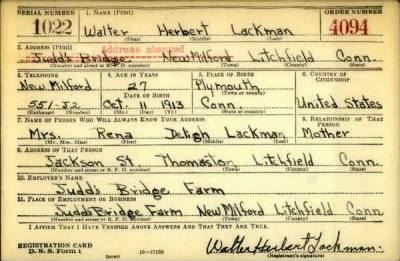 SERIAL NUMBER 1. NAME (Print) ORDER NUMBER
1022 Walter Herbert Lackman 4094
(First) (Middle) (Last)
2. ADDRESS (Print) Address changed
Judd's Bridge New Milford Litchfield Conn.
(Number and street or R. F. D. number) (Town) (County) (State)
3. TELEPHONE 4. AGE IN YEARS 5. PLACE OF BIRTH 6. COUNTRY OF CITIZENSHIP
New Milford 27 Plymouth
DATE OF BIRTH (Town or county)
551-J2 Oct. 11 1913 Conn. United States
(Exchange) (Number) (Mo.) (Day) (Yr.) (State or country)
7. NAME OF PERSON WHO WILL ALWAYS KNOW YOUR ADDRESS 8. RELATIONSHIP OF THAT PERSON
Mrs. Rena Lackman Mother
(Mr., Mrs., Miss) (First) (Middle) (Last)
9. ADDRESS OF THAT PERSON
Jackson St Thomaston Litchfield Conn
(Number and street or R. F. D. number) (Town) (County) (State)
10. EMPLOYER'S NAME
Judd's Bridge Farm
11. PLACE OF EMPLOYMENT OR BUSINESS
Judd's Bridge Farm New Milford Litchfield Conn
(Number and street or R. F. D. number) (Town) (County) (State)
I AFFIRM THAT I HAVE VERIFIED ABOVE ANSWERS AND THAT THEY ARE TRUE.
REGISTRATION CARD
D. S. S. Form 1 (over) Walter Herbert Lackman.
(Registrant's signature)